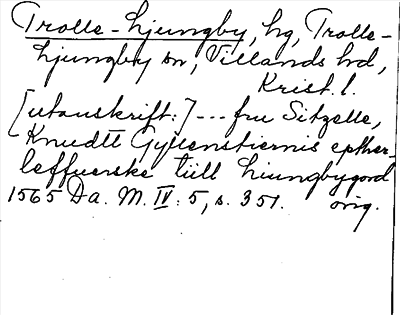 Trolle-Ljungby, hg, Trolle-
Ljungby sn, Villands hd,
Krist. l.
[utanskrift:] --- fru Sitzelle,
Knudtt Gyllenstiernis epther-
leffuerske tiill Liungbygord
1565 Da. M. IV: 5, s. 351. orig.